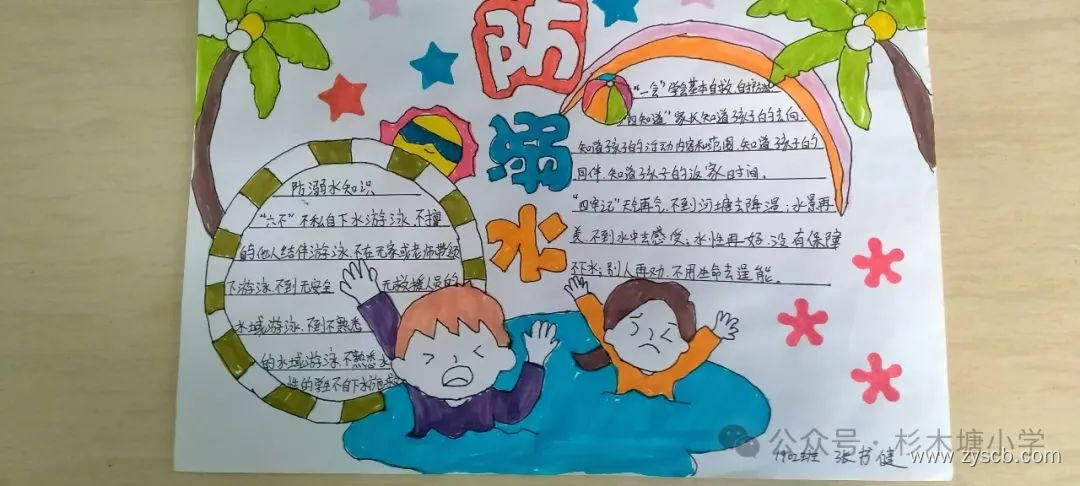 防
溺
水
防溺水知识
"六不"不私自下水游泳、不擅
的他人结伴游泳、不在无家或老师带领
下游泳、不到无安全 无救援人员的
水域游泳、不到不熟悉
的水域游泳、不熟悉水
性的学生不自下水施救
"一会"学会基本自救、自护
"四知道"家长知道孩子的去向、
知道孩子的活动内容和范围、知道孩子的
同伴、知道孩子的返家日时间。
"四牢记"天气再气、不到河塘去降温；水景再
美、不到水中去感受；水性再好、没有保障
不下水；别人再劝、不用生命去逞能。
公众号·杉木塘小学
www.zyscb.com